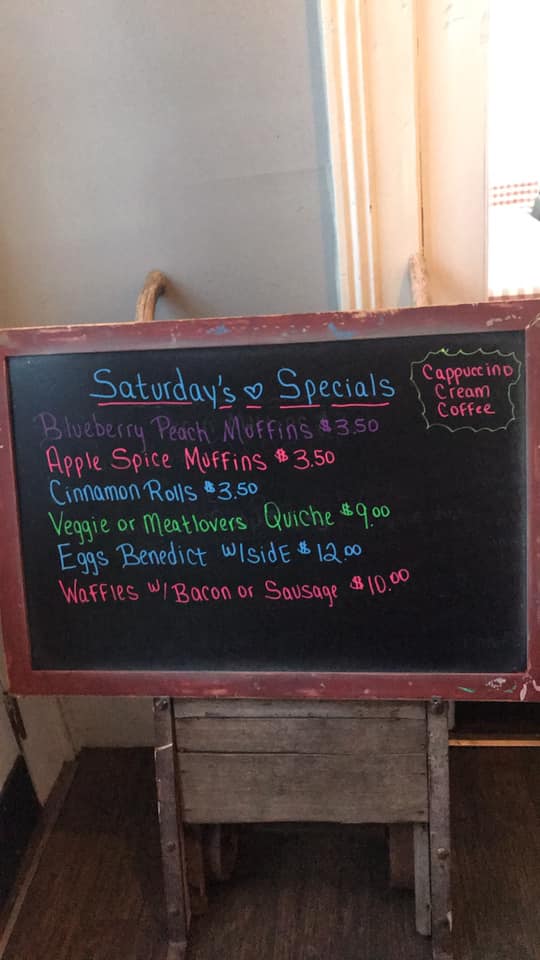 Saturday's ♡ Specials
Blueberry Peach Muffins $3.50
Apple Spice Muffins $3.50
Cinnamon Rolls $3.50
Veggie or Meatlovers Quiche $9.00
Eggs Benedict w/side $12.00
Waffles w/ Bacon or Sausage $10.00
Cappuccino
Cream
Coffee